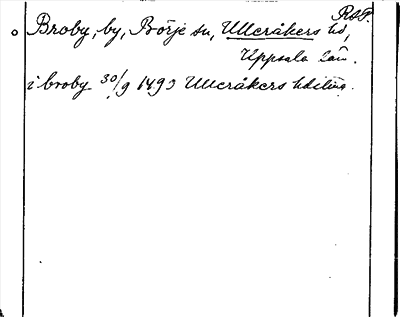 RAP.
Broby, by, Börje sn, Ulleråkers hd,
Uppsala län.
i broby 30/9 1493 Ulleråkers hdsting.